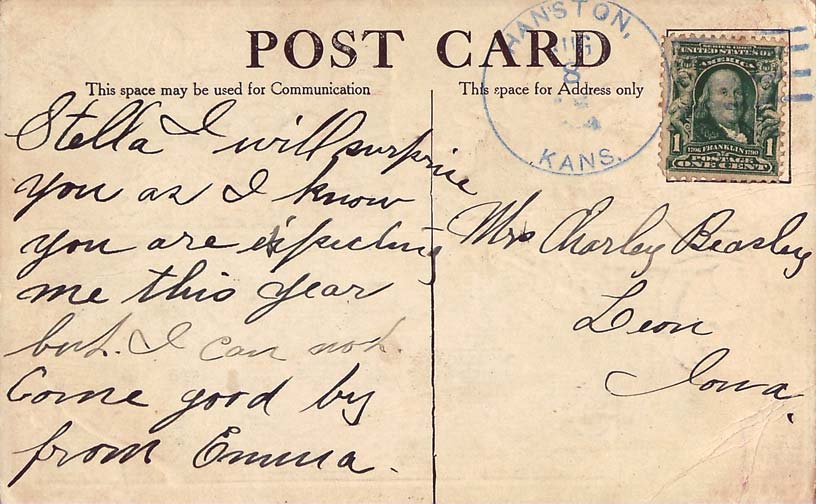 POST CARD
This space may be used for Communication
This space for Address only
HANSTON,
KANS.
SERIES 1902
UNITED STATES OF
AMERICA
1 1
1706 FRANKLIN 1790
POSTAGE
ONE CENT
Stella I will surprise
you as I know
you are expecting
me this year
but. I can not.
Come good by
from Emma.
Mrs Charley Beasley
Leon
Iowa.